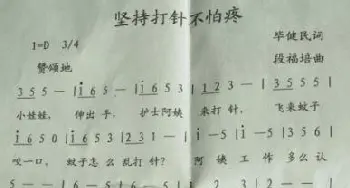 坚持打针不怕疼
1=D 3/4 毕健民词
赞颂地 段福培曲
3 5 5 — | i 6 5 — | i 6 5 3 | 1 2 3 — | 3 5 5 5 |
小娃娃， 伸出手， 护士阿姨 来打针， 飞来蚊子
i 6 5 0 | i 6 5 3 | 2 3 1 — | i — 5 | i — 5 | 1 3 5 6 |
咬一口， 蚊子怎么乱打针？ 阿姨工作多么认